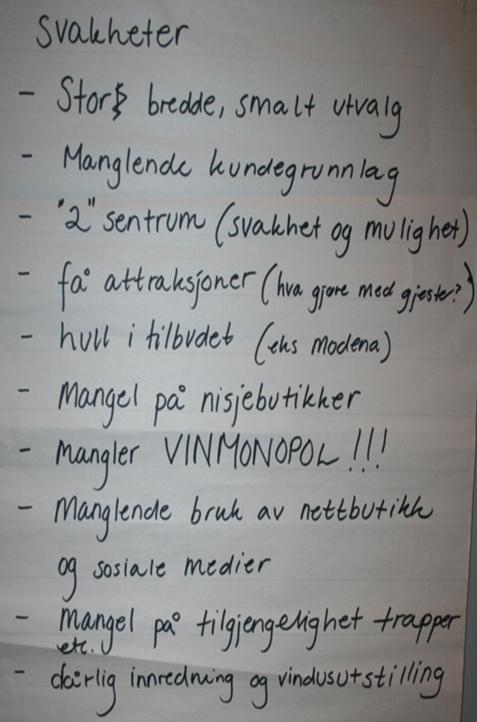 Svakheter
- Stor bredde, smalt utvalg
- Manglende kundegrunnlag
- "2" sentrum (svakhet og mulighet)
- få attraksjoner (hva gjøre med gjester?)
- hull i tilbudet (eks modena)
- Mangel på nisjebutikker
- Mangler VINMONOPOL!!!
- Manglende bruk av nettbutikk
og sosiale medier
- Mangel på tilgjengelighet trapper
etc.
- dårlig innredning og vindusutstilling